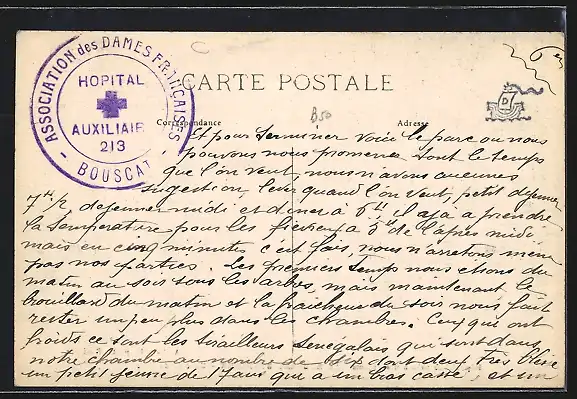 6em
ASSOCIATION des DAMES FRANÇAISES
HOPITAL
AUXILIAIRE
213
- BOUSCAT -
CARTE POSTALE
Correspondance
Adresse
B50
D
Et pour terminer voici le parc ou nous
pouvons nous promener tout le temps
que l'on veut, nous n'avons aucunes
sugestion, lever quand l'on veut, petit déjeuner
7h ½ dejeuner midi et diner à 6h il a à prendre
la température pour les fievreux à 3h de l'apres midi
mais en cinq minutes c'est fait, nous n'arretons même
pas nos parties. les premiers temps nous etions du
matin au soir sous les arbres, mais maintenant le
brouillard du matin et la fraicheur du soir nous fait
rester un peu plus dans la chambre. Ceux qui ont
froids ce sont les tirailleurs Senegalais qui sont dans
notre chambre au nombre de six dont deux très
un petit jeune de 17 ans qui a un bras cassé, et un